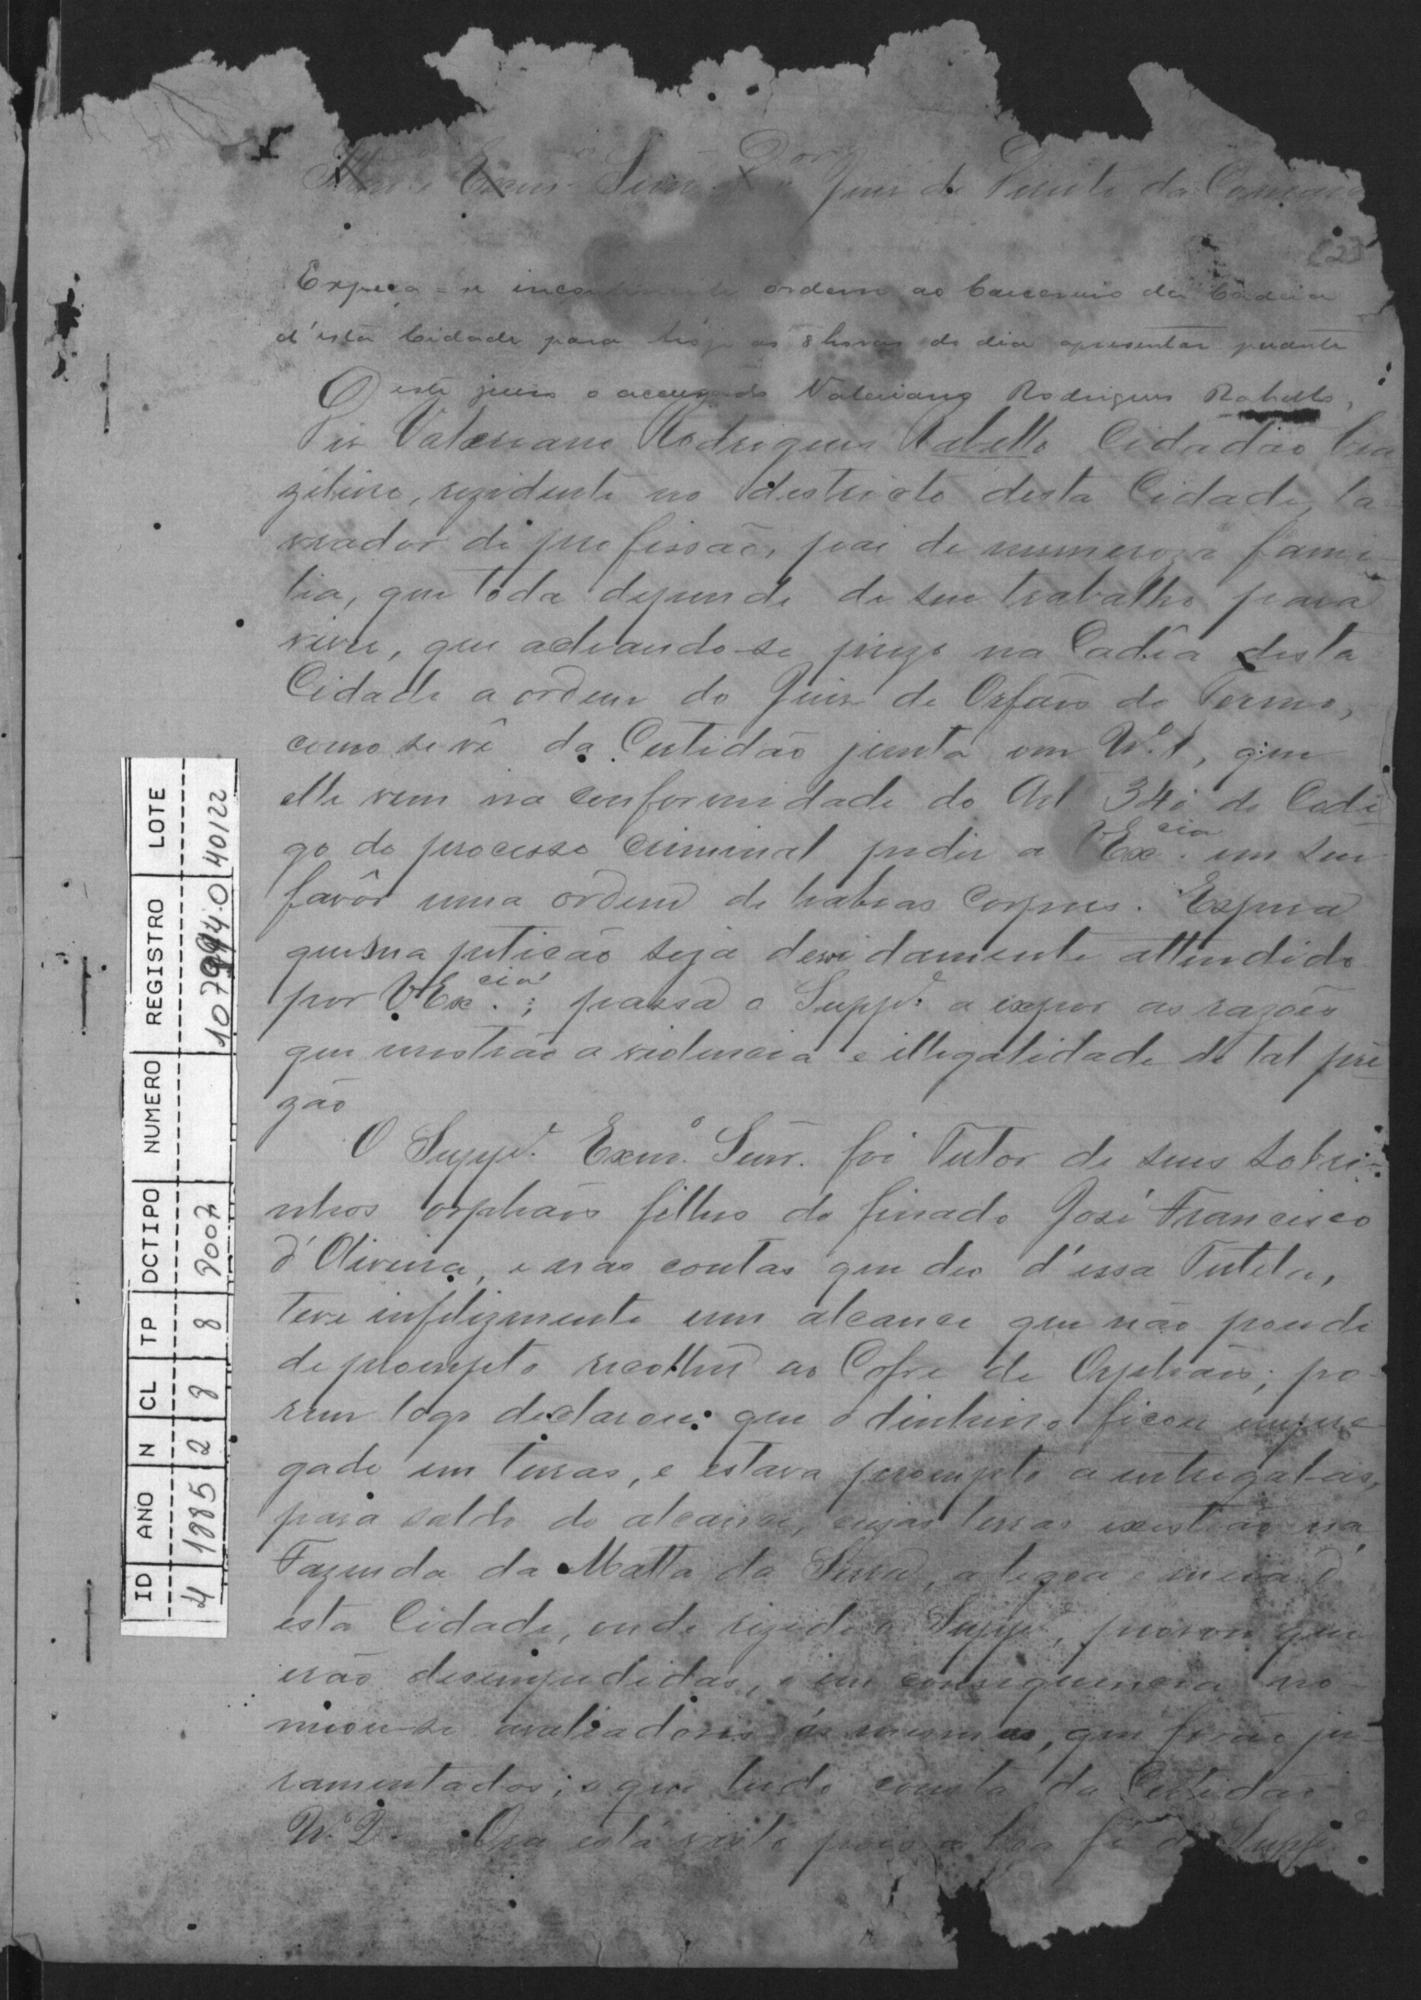 Illmo. Exmo. Senr. Dor. Juiz de Direito da Comarca
Expeça-se incontinente ordem ao Carcereiro da Cadeia
d'esta Cidade para hoje as 8 horas do dia apresentar perante
este juizo o accusado Valeriano Rodrigues Rabello,
Diz Valeriano Rodrigues Rabello Cidadão bra
zileiro, rezidente no destricto desta Cidade, la-
vrador de profissão, pai de numeroza fami-
lia, que toda depende de seu trabalho para
viver, que achando-se prezo na Cadêa desta
Cidade a ordem do Juiz de Orfãos do Termo,
como se vê da Certidão junta em No. 1, que
elle vem na conformidade do Art 340 do Codi-
go do processo criminal pedir a V Excia. em seu
favôr uma ordem de habeas Corpus. Espera
que sua petição seja devidamente attendido
por V Excia.; passa o Suppe. a expor as razões
que mostrão a violencia e illegalidade de tal pri
zão
O Suppe. Exmo. Senr. foi Tutor de seus sobri-
nhos orphãos filhos do finado José Francisco
d'Oliveira, e nas contas que deo d'essa Tutela,
teve infelizmente um alcance que não poude
de prompto recolher ao Cofre de Orphãos; po-
rem logo declarou que o dinheiro ficou empre
gado em terras, e estava prompto a entregal-as,
para saldo do alcance, cujas terras existião na
Fazenda da Matta da Serra, a legoa e meia d'
esta Cidade, onde rezide o Suppe., provou que
erão desempedidas, e em consequencia no-
meou-se avaliadores ás mesmas, que forão ju-
ramentados; o que tudo consta da Certidão
No. 2. Ora está visto pois a boa fé do Suppe.
ID ANO N CL TP DCTIPO NUMERO REGISTRO LOTE
4 1885 2 8 8 9002 107994.0 40122